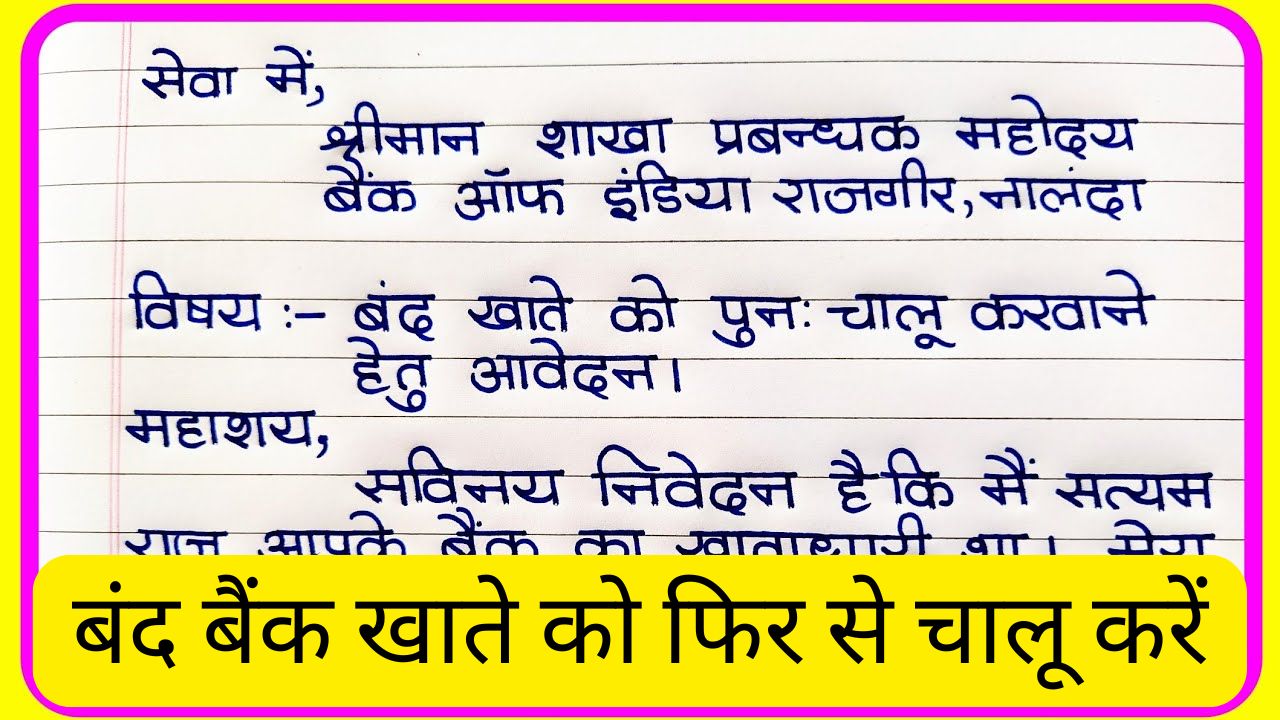 सेवा में,
श्रीमान शाखा प्रबन्धक महोदय
बैंक ऑफ इंडिया राजगीर, नालंदा
विषय :- बंद खाते को पुनः चालू करवाने
हेतु आवेदन।
महाशय,
सविनय निवेदन है कि मैं सत्यम
राज आपके बैंक का खाताधारी था। मेरा
बंद बैंक खाते को फिर से चालू करें